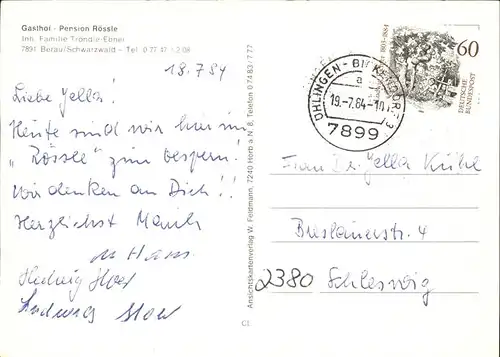 Gasthof - Pension Rössle
Inh. Familie Tröndle-Ebner
7891 Berau/Schwarzwald - Tel 0 77 47
18.7.84
Liebe Yella!
Heute sind wir hier im
"Rössle" zum Vespern!
Wir denken an Dich!!
Herzlichst
u Hans
Hedwig
Ludwig
Ansichtskartenverlag W. Feldmann, 7240 Horb a N 8, Telefon 0 74 83 / 7 77
60
DEUTSCHE
BUNDESPOST
ÜHLINGEN-BIRKENDORF 3
a
19.-7.84-10
7899
Frau Dr. Yella Kühl
Breslauerstr. 4
2380 Schleswig